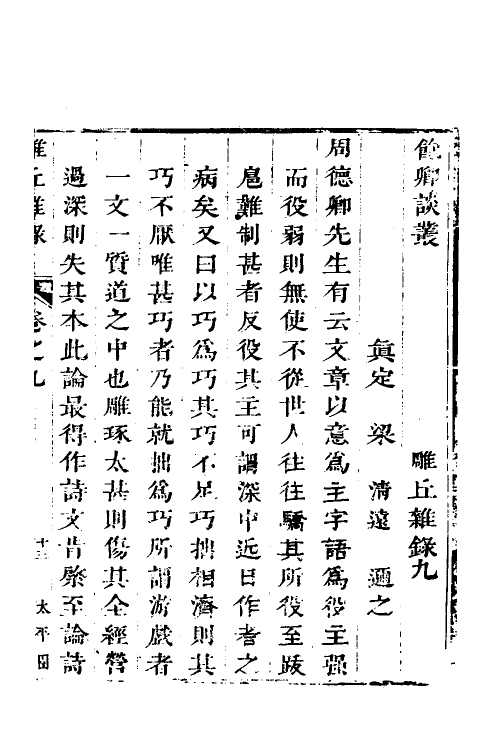 飽卿談叢　雕丘雜錄九
眞定　梁　清遠　邇之
周德卿先生有云文章以意爲主字語爲役主强
而役弱則無使不從世人往往驕其所役至跋
扈難制甚者反役其主可謂深中近日作者之
病矣又曰以巧爲巧其巧不足巧拙相濟則其
巧不厭唯甚巧者乃能就拙爲巧所謂游戲者
一文一質道之中也雕琢太甚則傷其全經營
過深則失其本此論最得作詩文肯綮至論詩
雕丘雜錄　卷之九　十三　太平園